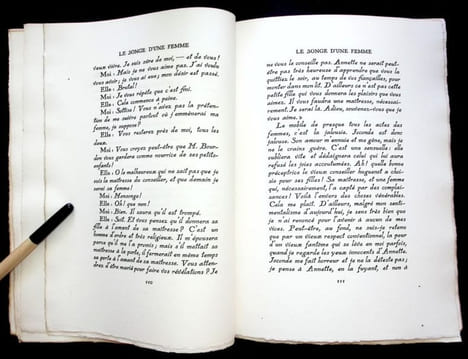 LE SONGE D'UNE FEMME
vieux Être. Je suis sûre de moi, — et de vous!
Moi : Mais je ne vous aime pas. J'ai voulu
vous avoir; je vous ai eue; mon désir est passé.
Elle : Brutal!
Moi : Je vous répète que c'est fini.
Elle : Cela commence à peine.
Moi : Sottise! Vous n'avez pas la préten-
tion de me suivre partout où j'emmènerai ma
femme, je suppose?
Elle : Vous resterez près de moi, tous les
deux.
Moi : Vous croyez peut-être que M. Bour-
don vous gardera comme nourrice de ses petits-
enfants?
Elle : O le malheureux qui ne sait pas que je
suis la maîtresse du conseiller, et que demain je
serai sa femme!
Moi : Mensonge!
Elle : Oh! que non!
Moi : Bien. Il saura qu'il est trompé.
Elle : Sot. Et vous pensez qu'il donnera sa
fille à l'amant de sa maîtresse? C'est un
homme d'ordre et très religieux. Il m'épousera
parce qu'il me l'a promis; mais s'il mettait sa
maîtresse à la porte, il fermerait en même temps
sa porte à l'amant de sa maîtresse. Vous atten-
drez d'être marié pour faire vos révélations? Je
110
LE SONGE D'UNE FEMME
ne vous le conseille pas. Annette ne serait peut-
être pas très heureuse d'apprendre que vous la
quittiez le soir, au temps de vos fiançailles, pour
monter dans mon lit. D'ailleurs ce n'est pas cette
petite fille qui vous donnera les plaisirs que vous
aimez. Il vous faudra une maîtresse, nécessai-
rement. Je serai là. Adieu, soutenez-vous que je
vous aime. »
Le mobile de presque tous les actes des
femmes, c'est la jalousie. Joconde est donc
jalouse. Son amour m'ennuie et me gêne, mais je
ne le crains guère. C'est une sensuelle; elle
oubliera vite et dédaignera celui qui lui aura
refusé les joies accoutumées. Ah! quelle bonne
préceptrice le vieux conseiller huguenot a choi-
sie pour ses filles! Sa maîtresse, et une femme
qui, nécessairement, l'a capté par des complai-
sances! Voilà l'envers des choses vénérables.
Cela me plaît. D'ailleurs, malgré mon senti-
mentalisme d'aujourd'hui, je sens très bien que
je n'ai renoncé pour l'avenir à aucun de mes
vices. Peut-être, au fond, ne suis-je retenu
que par un vieux respect conventionnel, la peur
d'un vieux fantôme qui se lève en moi parfois,
quand je regarde les yeux innocents d'Annette.
Joconde me fait horreur et je ne la déteste pas;
je pense à Annette, en la fuyant, et non à
111